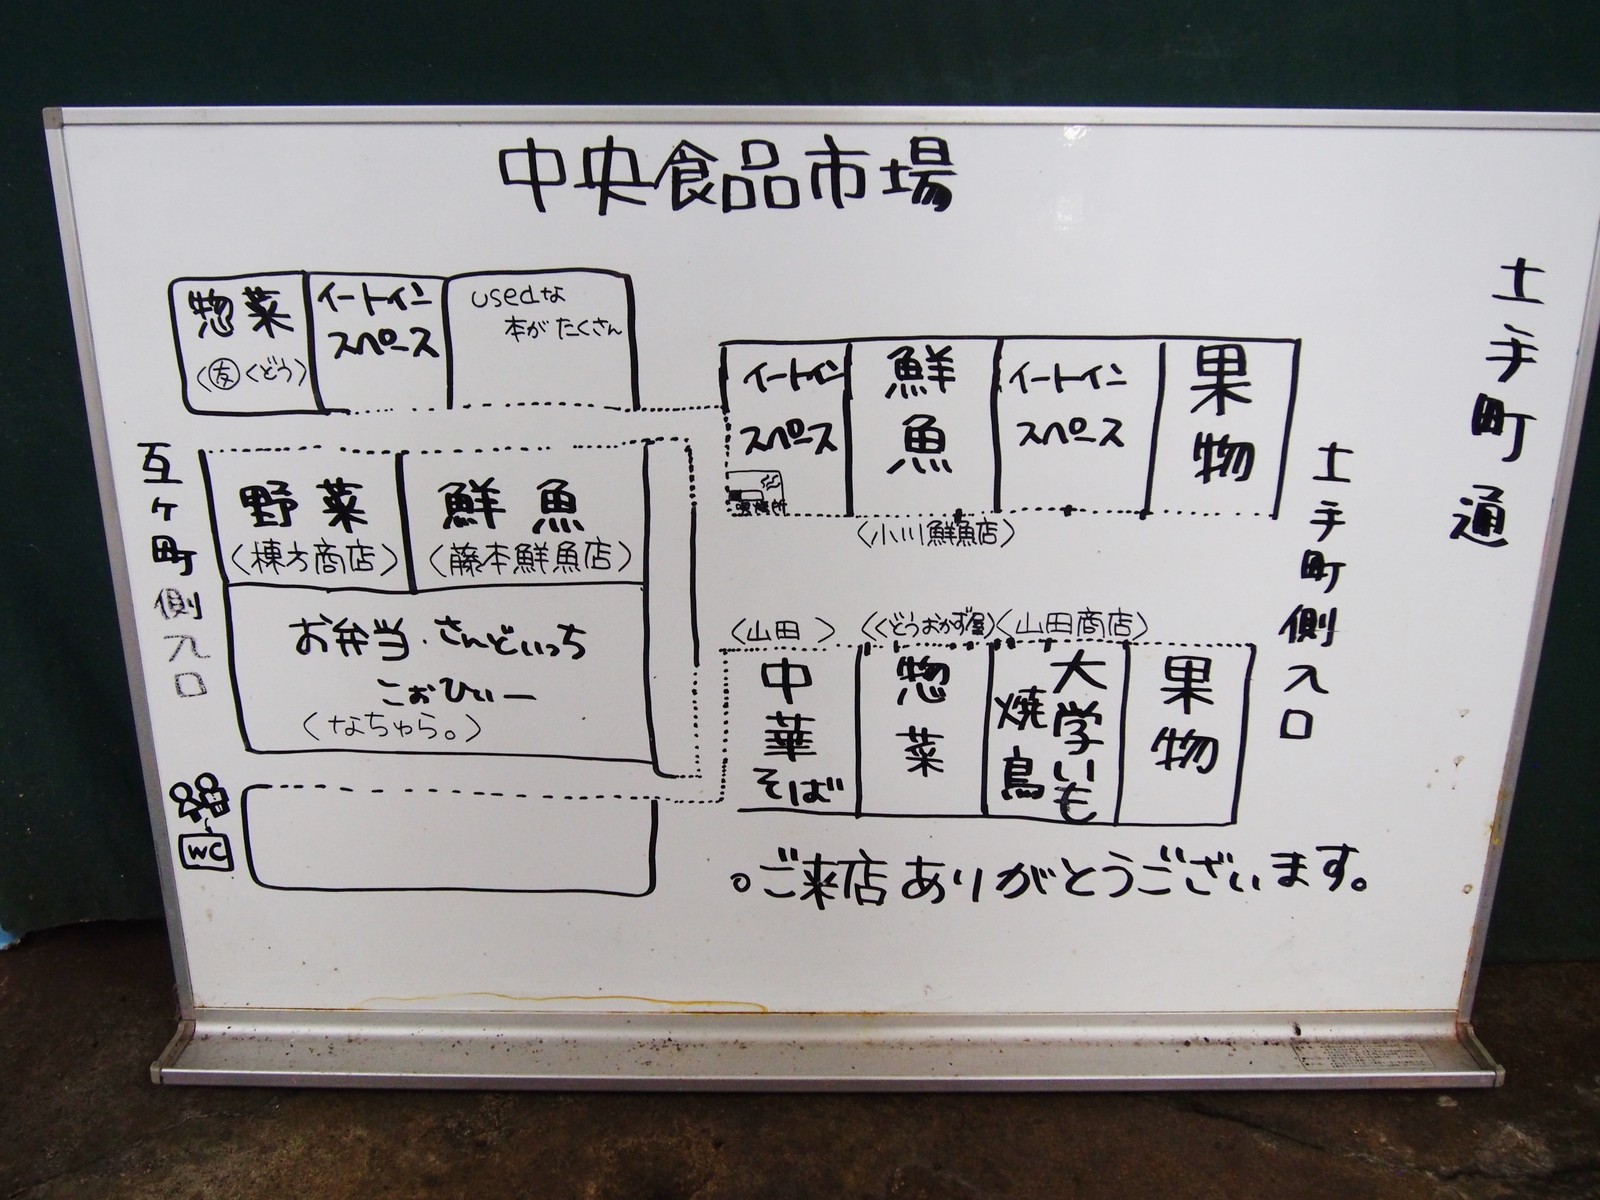 中央食品市場
土手町通
惣菜
(友くどう)
イートイン
スペース
usedな
本がたくさん
イートイン
スペース
喫煙所
鮮魚
(小川鮮魚店)
イートイン
スペース
果物
土手町側入口
互ヶ町側入口
野菜
(棟方商店)
鮮魚
(藤本鮮魚店)
お弁当・さんどいっち
こおひぃー
(なちゅら。)
(山田)
中華そば
(くどうおかず屋)
惣菜
(山田商店)
大学いも
焼鳥
果物
WC
。ご来店ありがとうございます。